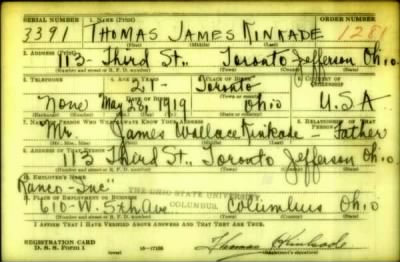 SERIAL NUMBER 1. NAME (Print) ORDER NUMBER
3391 THOMAS JAMES KINKADE 1281
(First) (Middle) (Last)
2. ADDRESS (Print)
113- Third St., Toronto Jefferson Ohio.
(Number and street or R. F. D. number) (Town) (County) (State)
3. TELEPHONE 4. AGE IN YEARS 5. PLACE OF BIRTH 6. COUNTRY OF CITIZENSHIP
21- Toronto
None May 28, 1919 Ohio U.S.A.
7. NAME OF PERSON WHO WILL ALWAYS KNOW YOUR ADDRESS 8. RELATIONSHIP OF THAT PERSON
Mr. James Wallace Kinkade - Father
(Mr., Mrs., Miss) (First) (Middle) (Last)
9. ADDRESS OF THAT PERSON
113 Third St., Toronto Jefferson Ohio.
(Number and street or R. F. D. number) (Town) (County) (State)
10. EMPLOYER'S NAME
Ranco-Inc"
THE OHIO STATE UNIVERSITY
11. PLACE OF EMPLOYMENT OR BUSINESS
COLUMBUS,
610-W. 5th Ave. Columbus Ohio
(Number and street or R. F. D. number) (Town) (County) (State)
I AFFIRM THAT I HAVE VERIFIED ABOVE ANSWERS AND THAT THEY ARE TRUE.
REGISTRATION CARD
D. S. S. Form 1 16-17105 Thomas Kinkade
(over) (Registrant's signature)